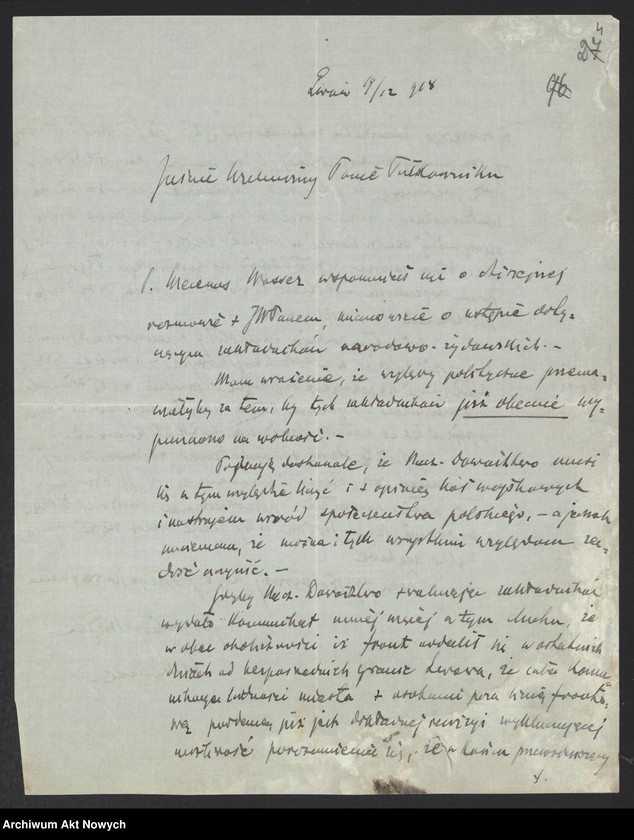 Lwów 9/12 918
Jaśnie Wielmożny Panie Pułkowniku
P. Mecenas Wasser wspomniał mi o dzisiejszej
rozmowie z JWPanem, mianowicie o ustępie doty-
czącym zakładników narodowo-żydowskich. -
Mam wrażenie, iż względy polityczne przema-
wiałyby za tem, by tych zakładników już obecnie wy-
puszczono na wolność. -
Pojmuję doskonale, że Nacz. Dowództwo musi
się w tym względzie liczyć i z opinią kół wojskowych
i nastrojem wśród społeczeństwa polskiego, - a jednak
mniemam, że można i tych wszystkim względom za-
dość uczynić. -
Gdyby Nacz. Dowództwo zwalniając zakładników
wydało komunikat mniej więcej w tym duchu, że
wobec okoliczności iż front oddalił się w ostatnich
dniach od bezpośrednich granic Lwowa, że cała komu-
nikacya ludności miasta z osobami poza linią fronto-
wą poddaną już jest dokładnej rewizyi wykluczającej
możliwość porozumienia się, - że w końcu
Archiwum Akt Nowych